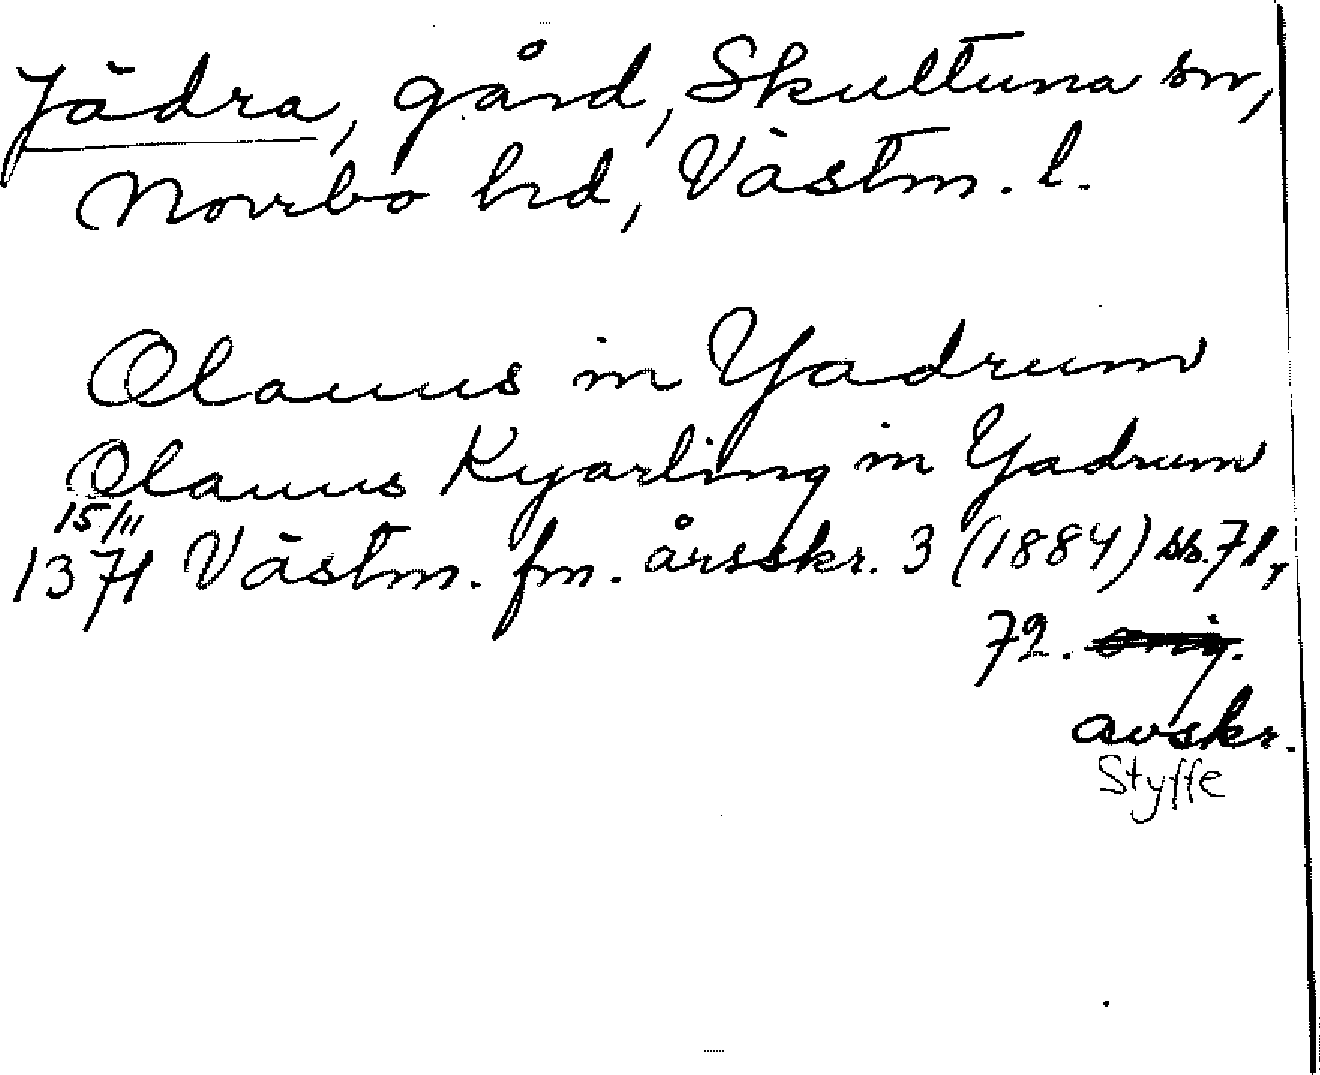 Jädra, gård, Skultuna sn,
Norrbo hd, Västm. l.
Olauus in Yadrum
Olauus Kyærling in Yadrum
15/11
1371 Västm. fm. årsskr. 3 (1884) ss. 71,
72. orig.
avskr.
Styffe